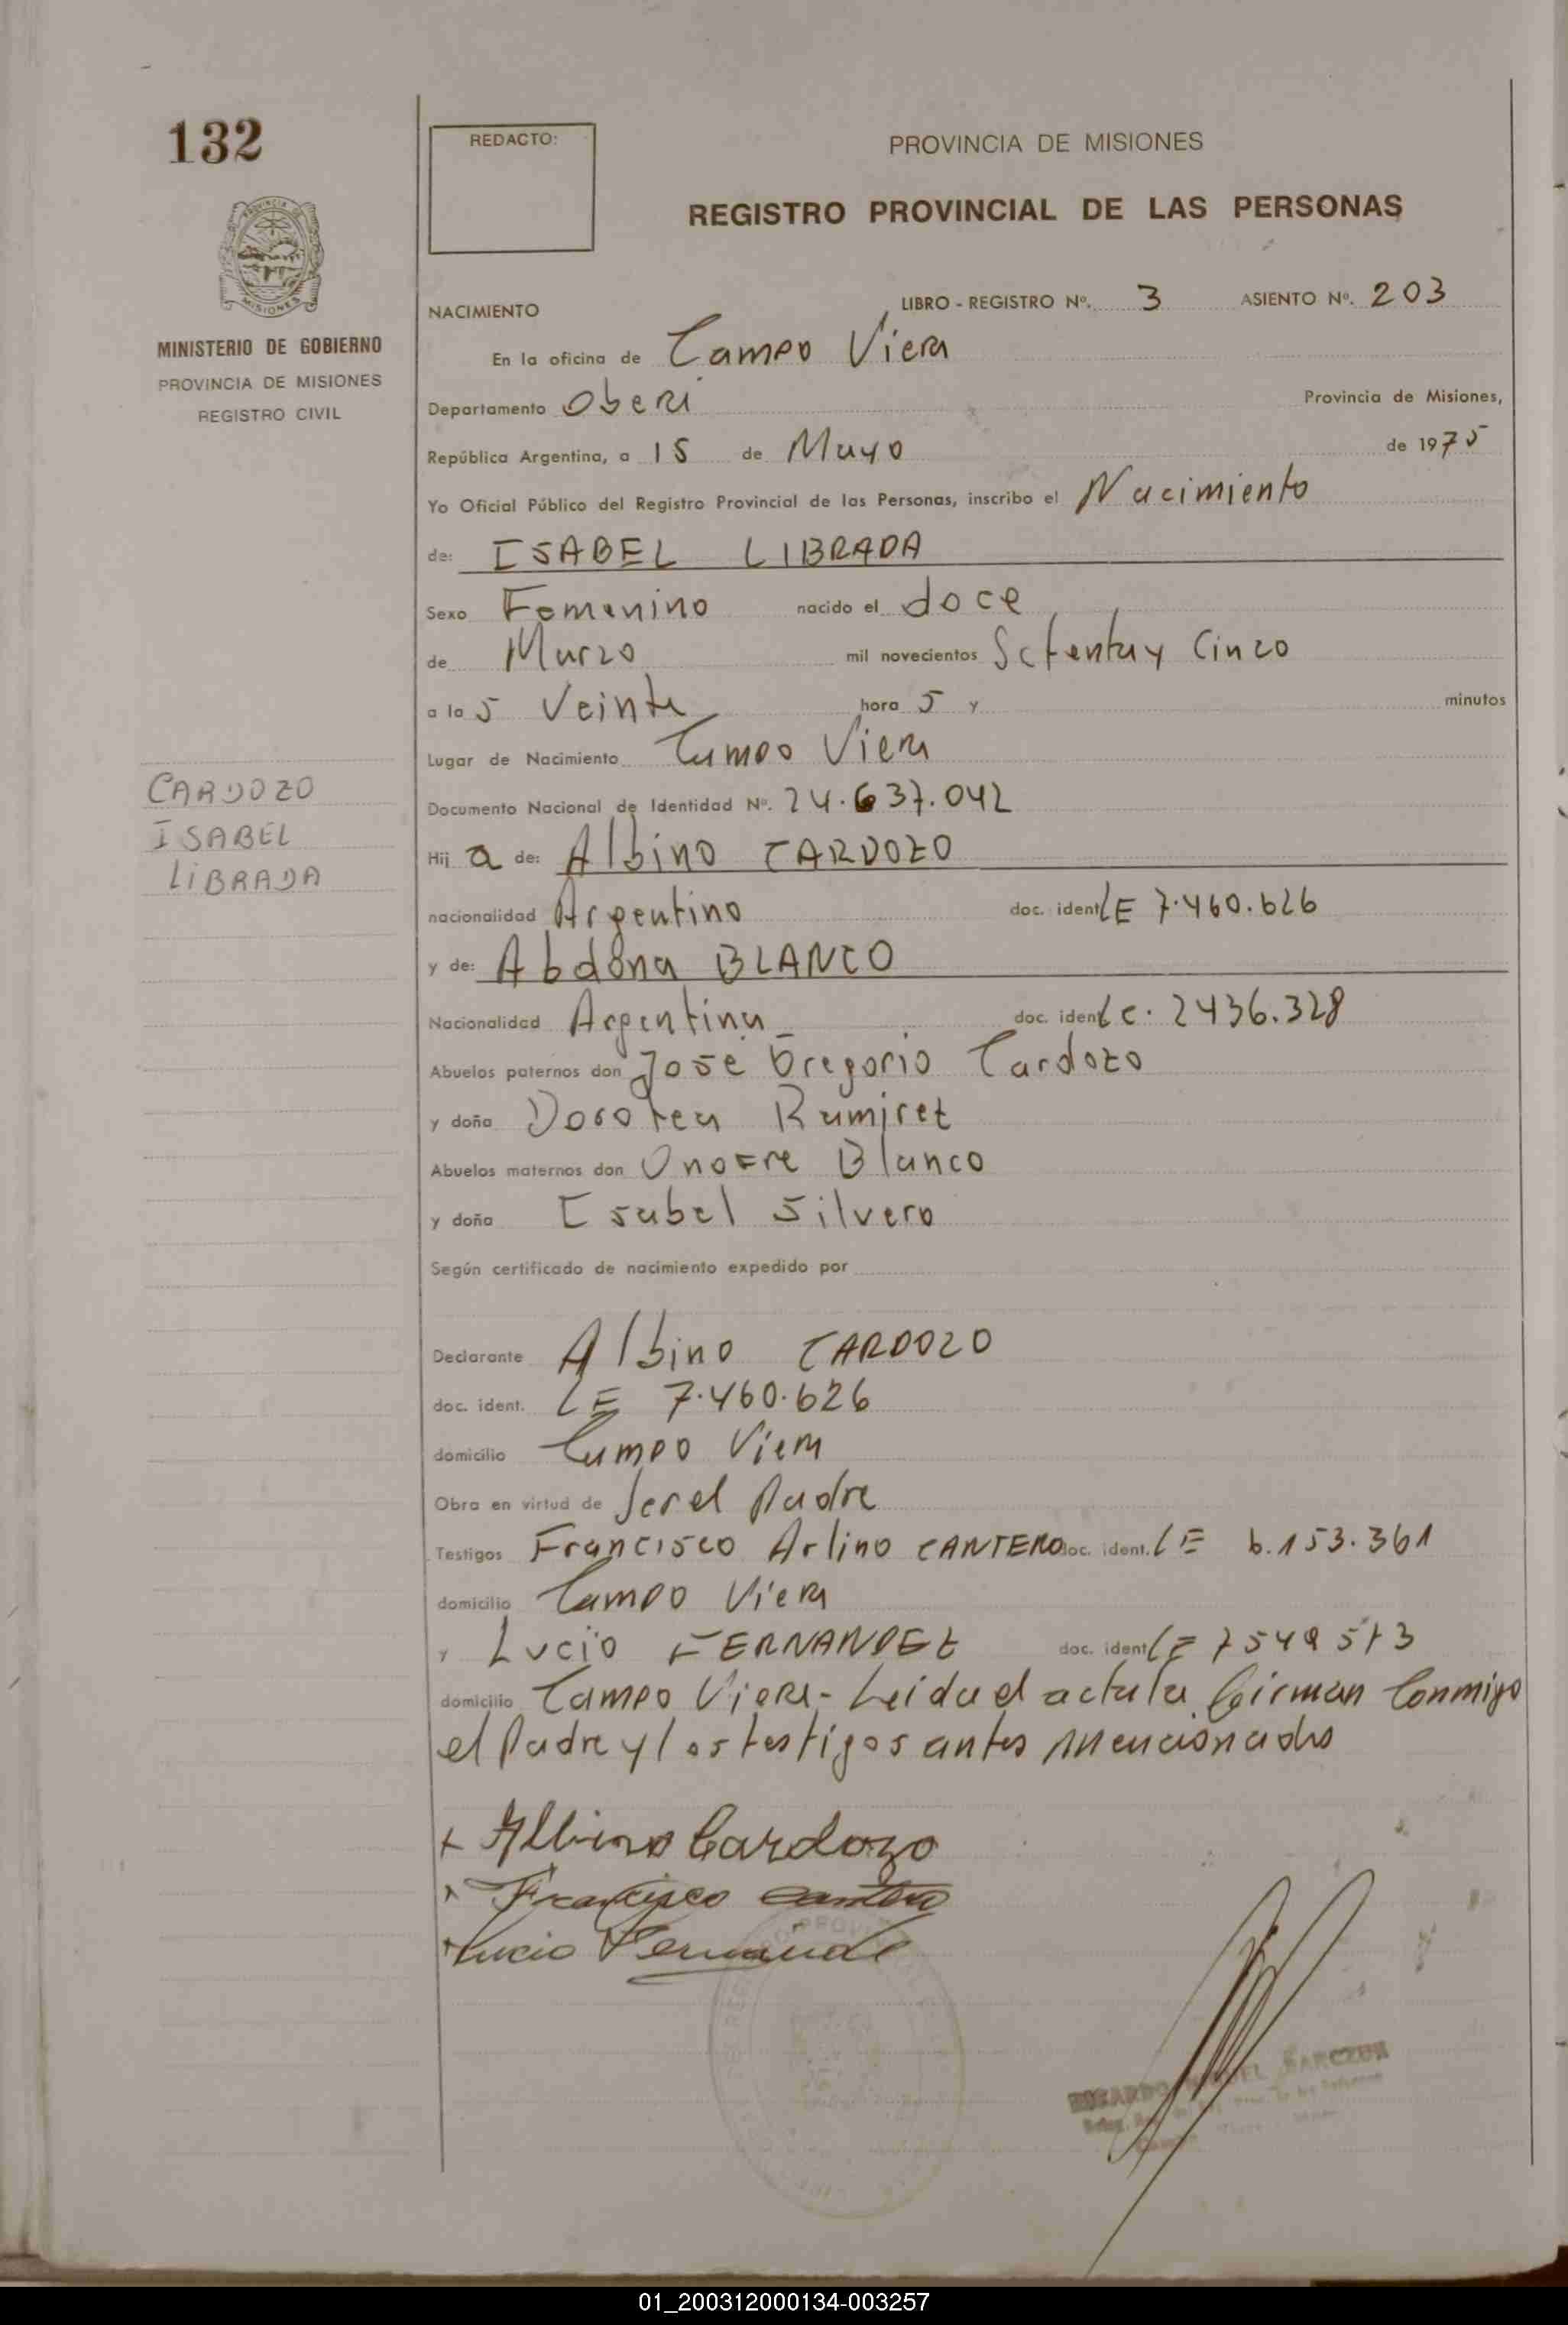 132
REDACTO:
PROVINCIA DE MISIONES
REGISTRO PROVINCIAL DE LAS PERSONAS
PROVINCIA DE
MISIONES
MINISTERIO DE GOBIERNO
PROVINCIA DE MISIONES
REGISTRO CIVIL
NACIMIENTO LIBRO - REGISTRO Nº. 3 ASIENTO Nº. 203
En la oficina de Campo Viera
Departamento Obera Provincia de Misiones,
República Argentina, a 15 de Mayo de 1975
Yo Oficial Público del Registro Provincial de las Personas, inscribo el Nacimiento
de: ISABEL LIBRADA
Sexo Femenino nacido el doce
de Marzo mil novecientos Setentay Cinco
a la s Veinte hora s y minutos
Lugar de Nacimiento Campo Viera
Documento Nacional de Identidad Nº. 24.637.042
CARDOZO
ISABEL
LIBRADA
Hij a de: Albino CARDOZO
nacionalidad Argentino doc. ident LE 7.460.626
y de: Abdona BLANCO
Nacionalidad Argentina doc. ident Lc. 2436.328
Abuelos paternos don José Gregorio Cardozo
y doña Dorotea Ramirez
Abuelos maternos don Onofre Blanco
y doña Isabel Silvero
Según certificado de nacimiento expedido por
Declarante Albino CARDOZO
doc. ident. LE 7.460.626
domicilio Campo Viera
Obra en virtud de ser el Padre
Testigos Francisco Arlino CANTERO doc. ident. LE 6.153.361
domicilio Campo Viera
y Lucio FERNANDEZ doc. ident LE 7549573
domicilio Campo Viera - Leida el acta la firman Conmigo
el Padre y los testigos antes mencionados
Albino Cardozo
Francisco Cantero
Lucio Fernande
01_200312000134-003257